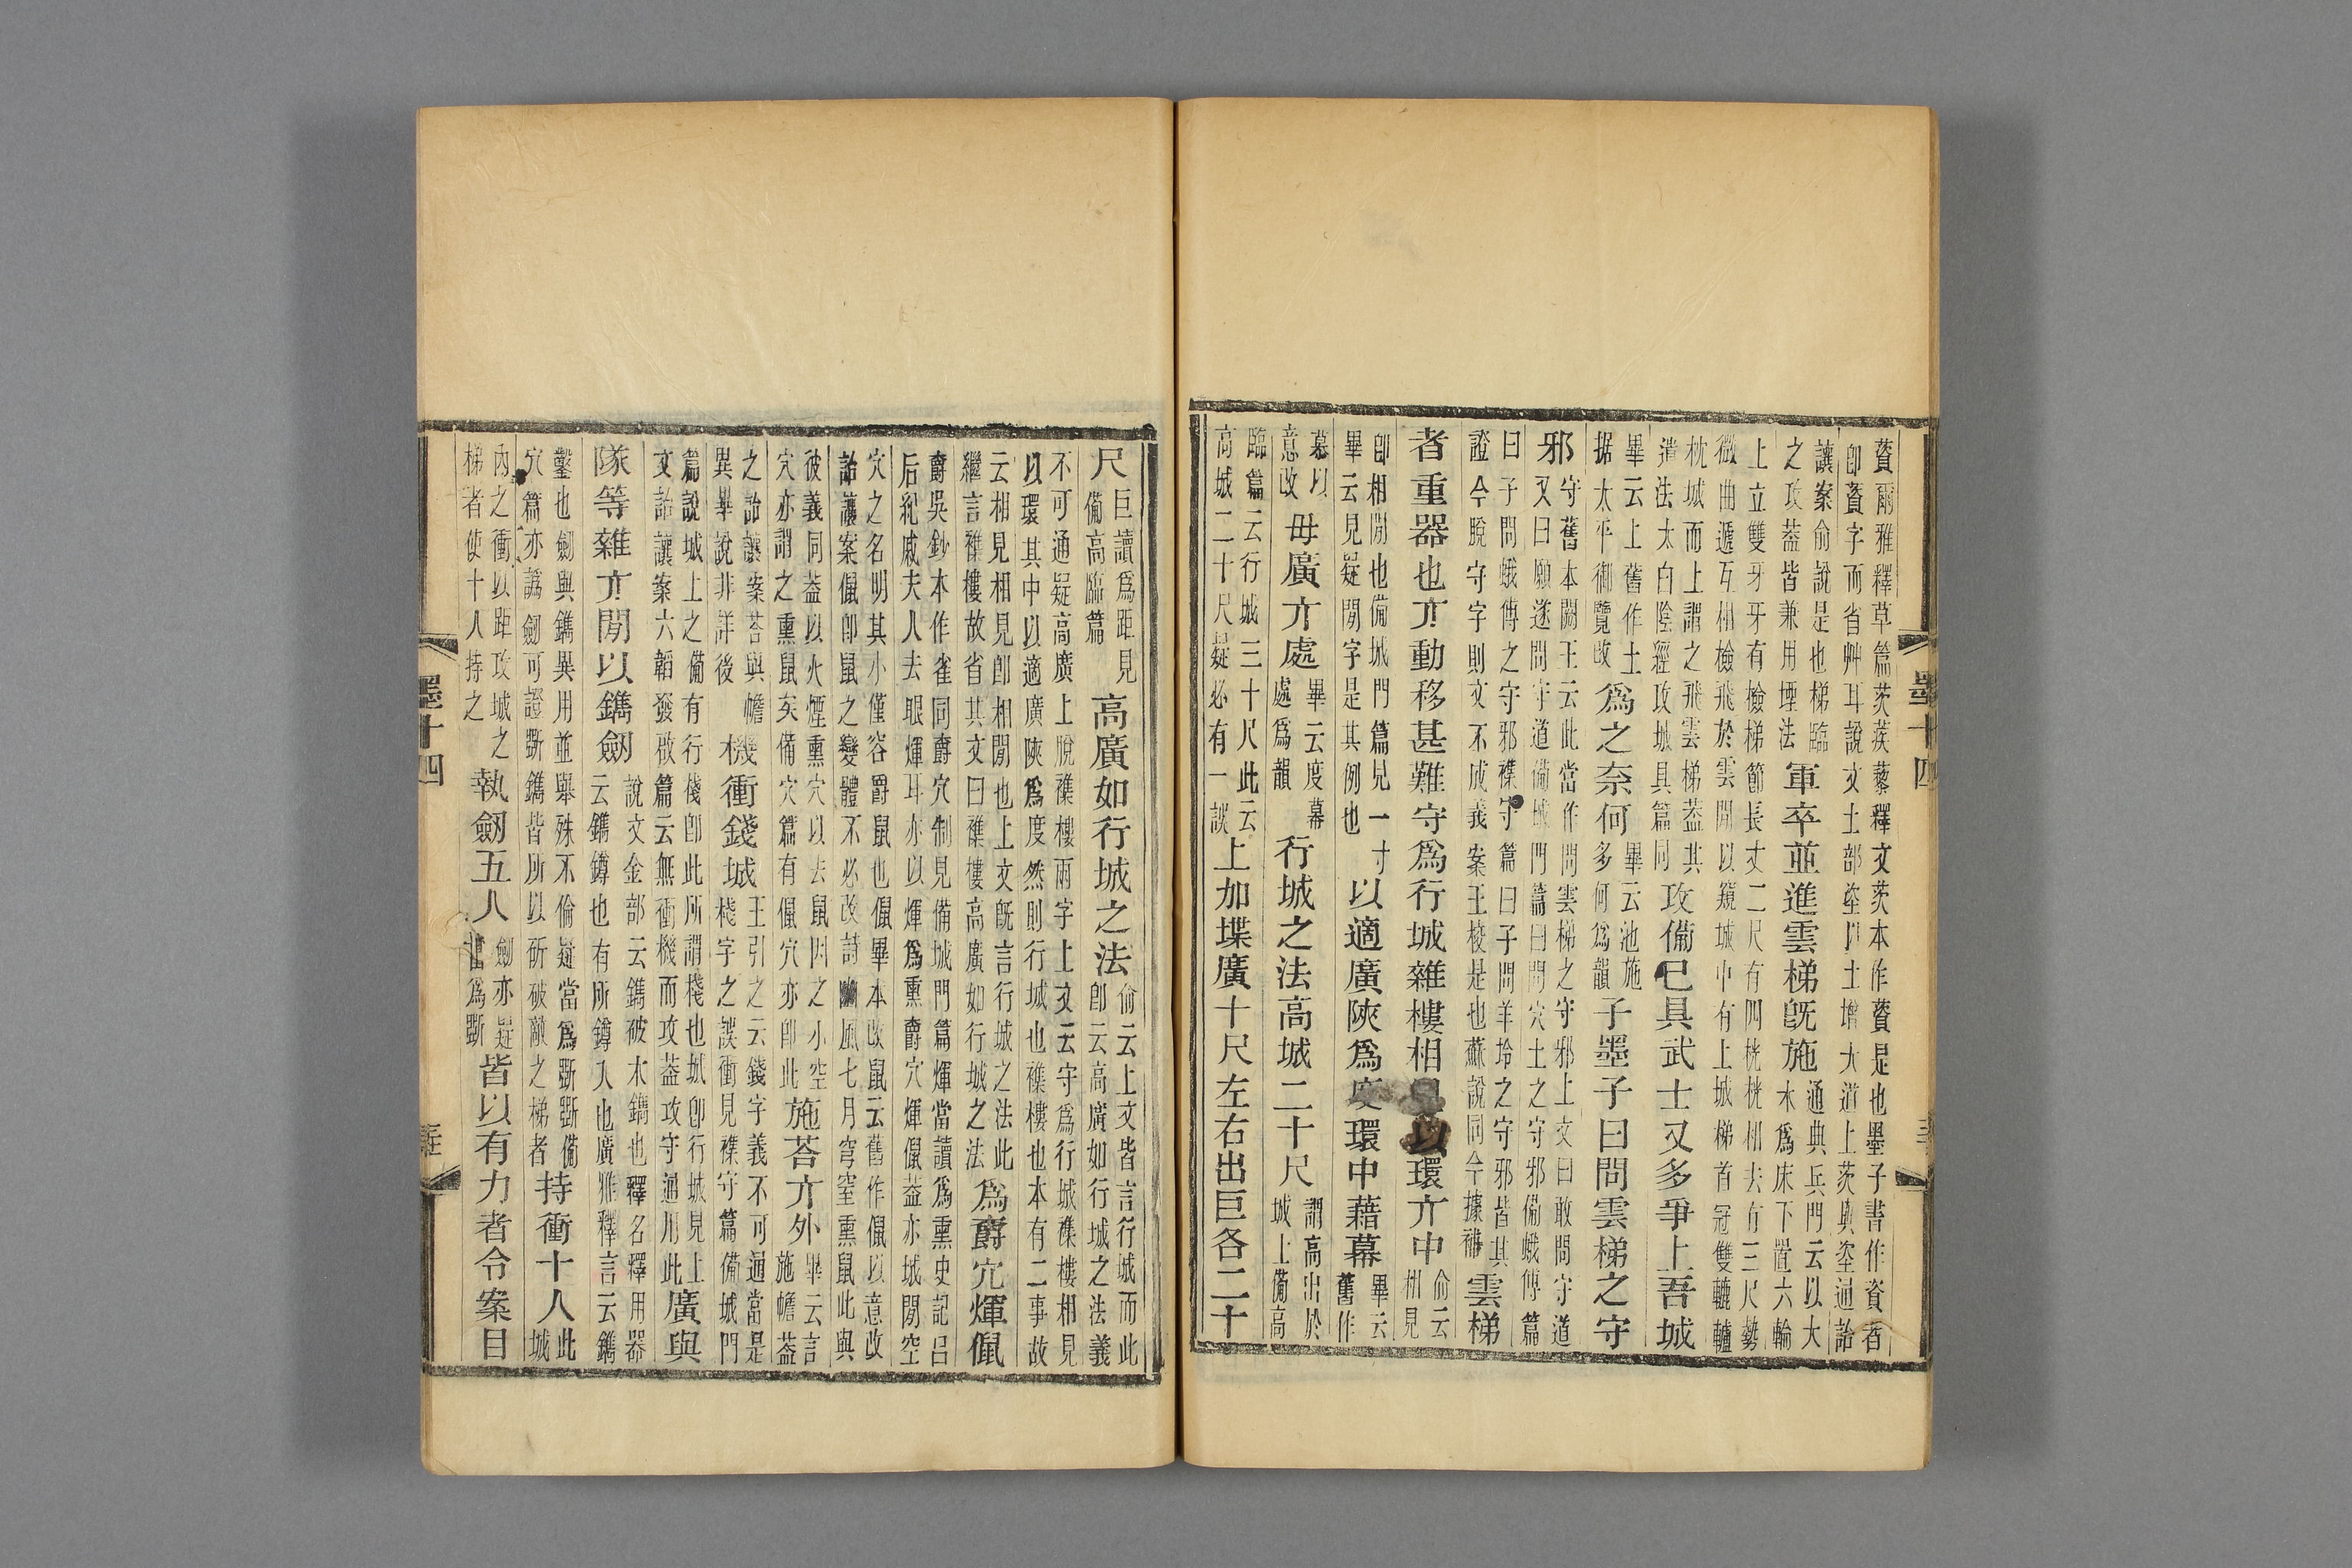 薋爾雅釋草篇茨蒺藜釋文茨本作薋是也墨子書作資者
卽薋字而省艸耳說文土部垐以土增大道上茨與垐通詒
讓案俞說是也梯臨
之攻蓋皆兼用堙法
軍卒並進雲梯旣施
通典兵門云以大
木爲床下置六輪
上立雙牙牙有檢梯節長丈二尺有四桄桄相去有三尺勢
微曲遞互相檢飛於雲閒以窺城中有上城梯首冠雙轆轤
枕城而上謂之飛雲梯蓋其
遺法太白陰經攻城具篇同
攻備已具武士又多爭上吾城
畢云上舊作土
据太平御覽改
爲之奈何
畢云池施
多何爲韻
子墨子曰問雲梯之守
邪
守舊本闕王云此當作問雲梯之守邪上文曰敢問守道
又曰願遂問守道備城門篇曰問穴土之守邪備蛾傅篇
曰子問蛾傅之守邪襍守篇曰子問羊坽之守邪皆其
證今脫守字則文不成義案王校是也蘇說同今據補
雲梯
者重器也亓動移甚難守爲行城雜樓相見以環亓中
俞云
相見
卽相閒也備城門篇見一寸
畢云見疑閒字是其例也
以適廣陜爲度環中藉幕
畢云
舊作
慕以
意改
毋廣亓處
畢云度幕
處爲韻
行城之法高城二十尺
謂高出於
城上備高
臨篇云行城三十尺此云
高城二十尺疑必有一誤
上加堞廣十尺左右出巨各二十
尺
巨讀爲距見
備高臨篇
高廣如行城之法
俞云上文皆言行城而此
卽云高廣如行城之法義
不可通疑高廣上脫襍樓兩字上文云守爲行城襍樓相見
以環其中以適廣陜爲度然則行城也襍樓也本有二事故
云相見相見卽相閒也上文旣言行城之法此
繼言襍樓故省其文曰襍樓高廣如行城之法
爲爵穴煇𠐊
爵吳鈔本作雀同爵穴制見備城門篇煇當讀爲熏史記呂
后紀戚夫人去眼煇耳亦以煇爲熏爵穴煇𠐊蓋亦城閒空
穴之名明其小僅容爵鼠也𠐊畢本改鼠云舊作𠐊以意改
詒讓案𠐊卽鼠之變體不必改詩豳風七月穹窒熏鼠此與
彼義同蓋以火煙熏穴以去鼠因之小空
穴亦謂之熏鼠矣備穴篇有𠐊穴亦卽此
施荅亓外
畢云言
施幨蓋
之詒讓案荅與幨
異畢說非詳後
機衝錢城
王引之云錢字義不可通當是
棧字之誤衝見襍守篇備城門
篇說城上之備有行棧卽此所謂棧也城卽行城見上
文詒讓案六韜發啟篇云無衝機而攻蓋攻守通用此
廣與
隊等雜亓閒以鐫劒
說文金部云鐫破木鐫也釋名釋用器
云鐫鐏也有所鐏入也廣雅釋言云鐫
鑿也劒與鐫異用並舉殊不倫疑當爲斲斲備
穴篇亦譌劒可證斲鐫皆所以斫破敵之梯者
持衝十人
此
城
內之衝以距攻城之
梯者使十人持之
執劒五人
劒亦疑
當爲斲
皆以有力者令案目
墨十四
墨十四